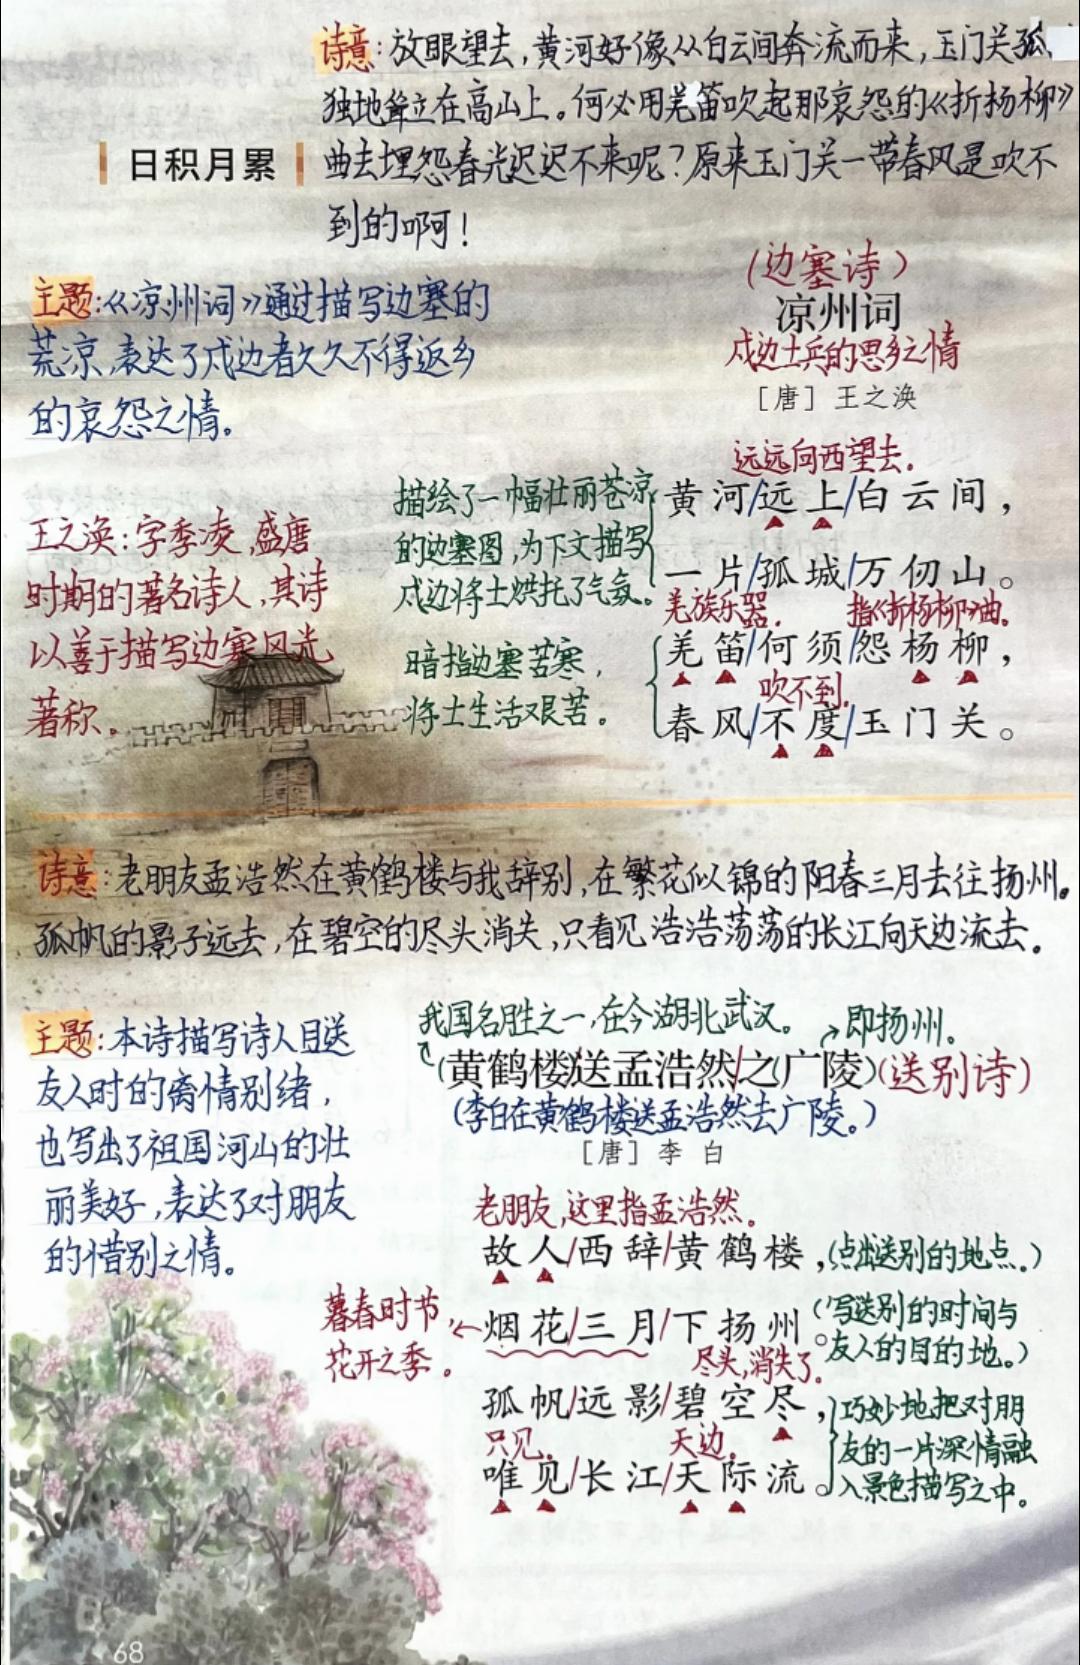 诗意:放眼望去,黄河好像从白云间奔流而来,玉门关孤
独地耸立在高山上。何必用羌笛吹起那哀怨的《折杨柳》
日积月累
曲去埋怨春光迟迟不来呢?原来玉门关一带春风是吹不
到的啊!
主题:《凉州词》通过描写边塞的
荒凉,表达了戍边者久久不得返乡
的哀怨之情。
(边塞诗)
凉州词
戍边士兵的思乡之情
[唐] 王之涣
王之涣:字季凌,盛唐
时期的著名诗人,其诗
以善于描写边塞风光
著称。
描绘了一幅壮丽苍凉
的边塞图,为下文描写
戍边将士烘托了气氛。
暗指边塞苦寒,
将士生活艰苦。
远远向西望去。
黄河/远上/白云间,
一片/孤城/万仞山。
羌族乐器。 指《折杨柳》曲。
羌笛/何须/怨杨柳,
吹不到。
春风/不度/玉门关。
诗意:老朋友孟浩然在黄鹤楼与我辞别,在繁花似锦的阳春三月去往扬州。
孤帆的影子远去,在碧空的尽头消失,只看见浩浩荡荡的长江向天边流去。
主题:本诗描写诗人目送
友人时的离情别绪,
也写出了祖国河山的壮
丽美好,表达了对朋友
的惜别之情。
我国名胜之一,在今湖北武汉。 即扬州。
(黄鹤楼)送孟浩然/之(广陵)(送别诗)
(李白在黄鹤楼送孟浩然去广陵。)
[唐] 李 白
老朋友,这里指孟浩然。
故人/西辞/黄鹤楼,(点出送别的地点。)
暮春时节,
花开之季。
烟花/三月/下扬州。
(写送别的时间与
友人的目的地。)
尽头,消失了。
孤帆/远影/碧空尽,
只见。 天边。
唯见/长江/天际流。
巧妙地把对朋
友的一片深情融
入景色描写之中。
68